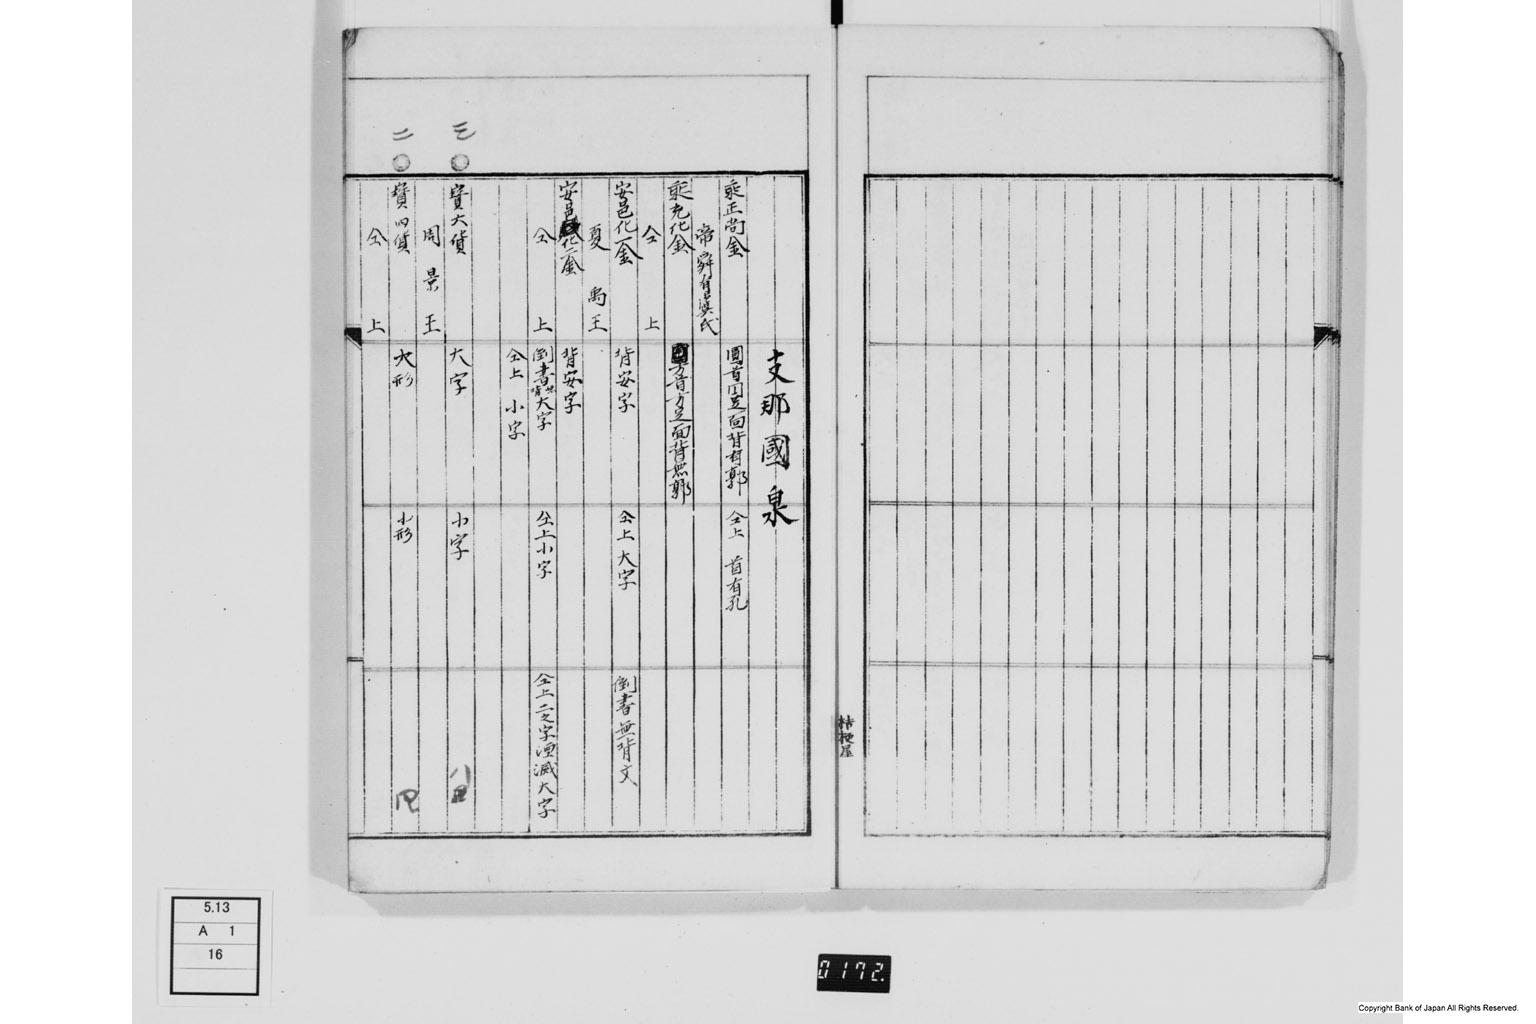 支那國泉
乘正尚金
圓首圓足面背有郭
仝上 首有孔
帝舜有虞氏
乘充化金
方首方足面背無郭
仝上
安邑化二金
背安字
仝上 大字
倒書無背文
夏禹王
安邑化一金
背安字
仝上
倒書背無大字
仝上小字
仝上二之字湮滅大字
仝上 小字
三
寶六貨
大字
小字
周景王
二
寶四貨
大形
小形
仝上
桔梗屋
5.13
A 1
16
0172.
Copyright Bank of Japan All Rights Reserved.